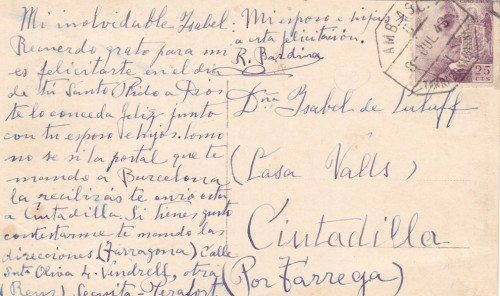 Mi inolvidable Isabel:
Recuerdo grato para mi
es felicitarte en el día
de tu Santo Pido a Dios
te lo conceda feliz junto
con tu esposo e hijos. Como
no se si la postal que te
mando a Barcelona
la recibiras te envio esta
a Ciutadilla. Si tienes gusto
contestarme te mando las
direcciones (Tarragona) Calle
Sta Oliva 4. Vendrell, otra
(Reus) Sequita - Perafort
Mi esposo e hijos se
a esta felicitación.
R. Bardina
Dña Isabel de
(Casa Valls)
Ciutadilla
(Por Tarrega)
AMB.
JUL 43
25
CTS